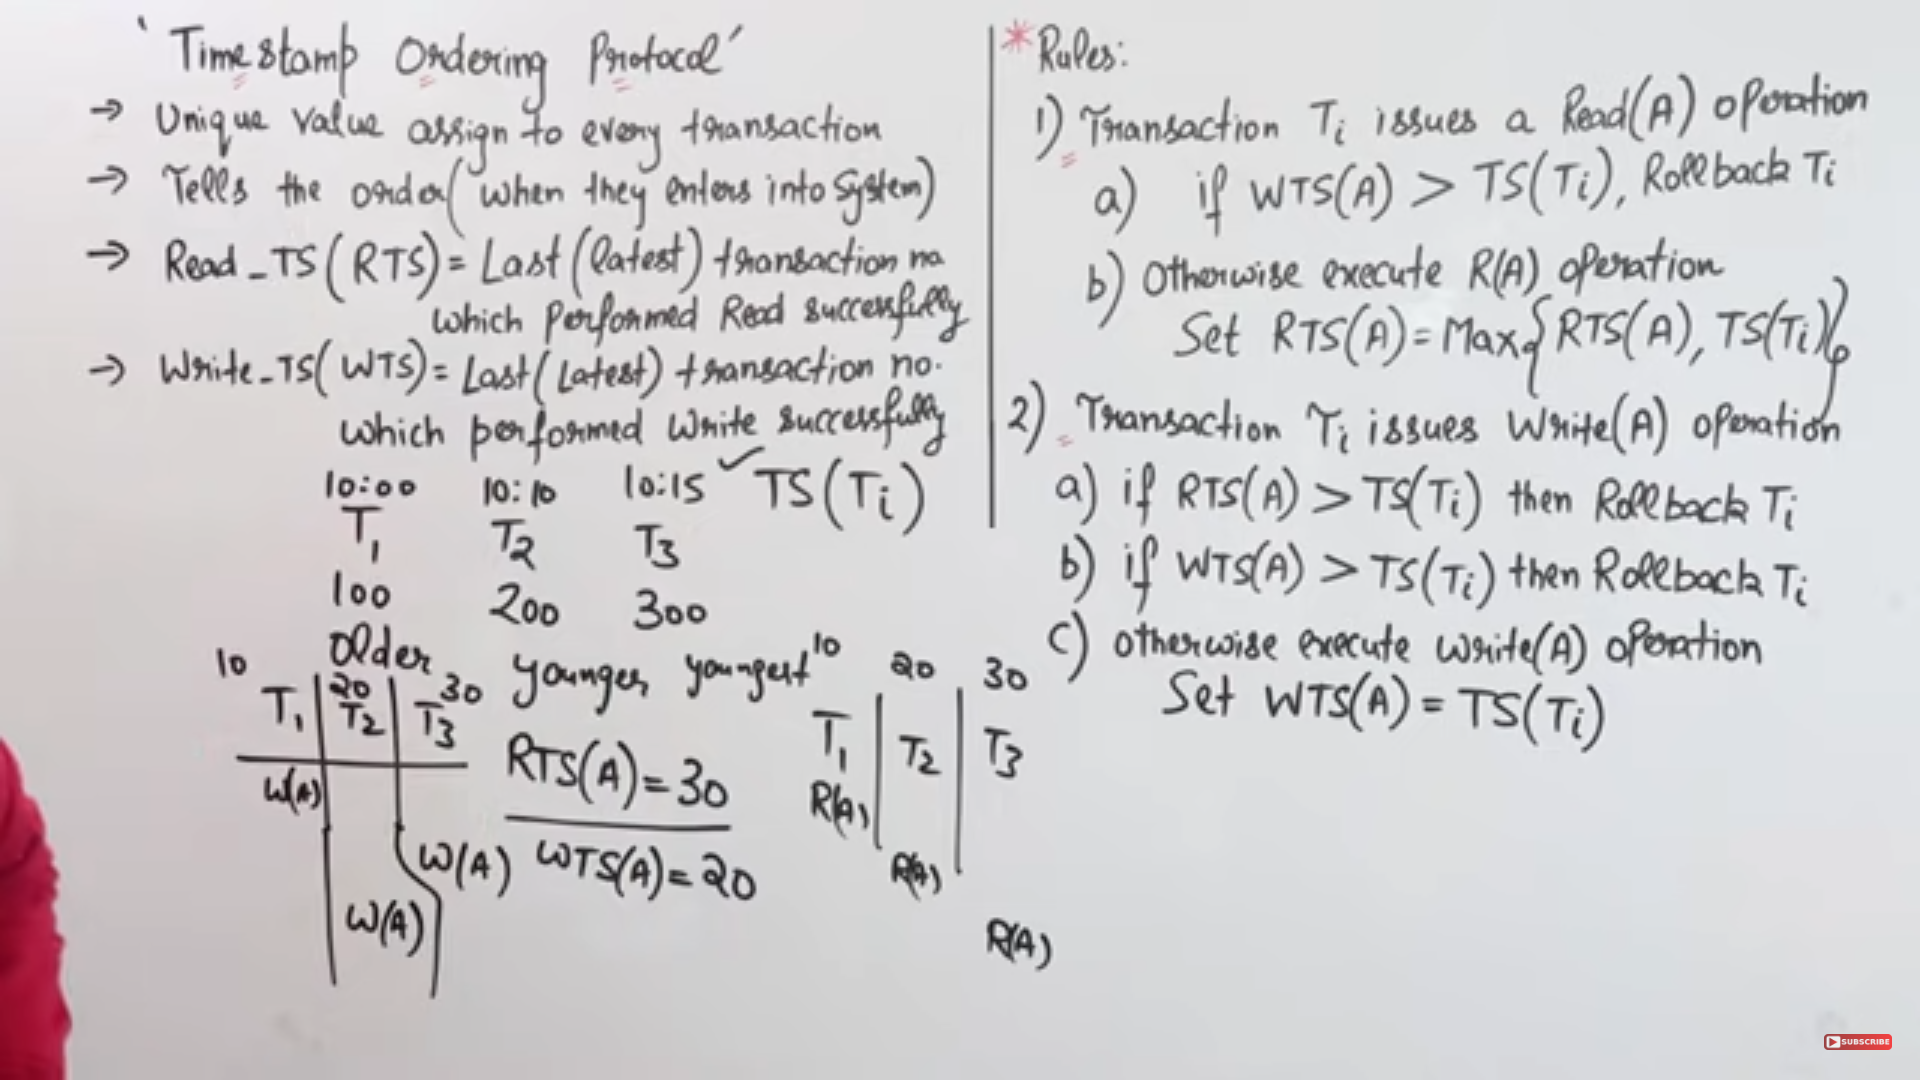 'Timestamp Ordering Protocol'
→ Unique value assign to every transaction
→ Tells the order (when they enters into System)
→ Read_TS (RTS) = Last (latest) transaction no
which performed Read successfully
→ Write_TS (WTS) = Last (Latest) transaction no.
which performed Write successfully
10:00 10:10 10:15 ✓ TS(Ti)
T1 T2 T3
100 200 300
Older younger youngest
10 20 30
T1 T2 T3
W(A)
W(A)
W(A)
RTS(A) = 30
WTS(A) = 20
10 20 30
T1 T2 T3
R(A)
R(A)
R(A)
* Rules:
1) Transaction Ti issues a Read(A) operation
a) if WTS(A) > TS(Ti), Rollback Ti
b) Otherwise execute R(A) operation
Set RTS(A) = Max{RTS(A), TS(Ti)}
2) Transaction Ti issues Write(A) operation
a) if RTS(A) > TS(Ti) then Rollback Ti
b) if WTS(A) > TS(Ti) then Rollback Ti
c) otherwise execute write(A) operation
Set WTS(A) = TS(Ti)
SUBSCRIBE